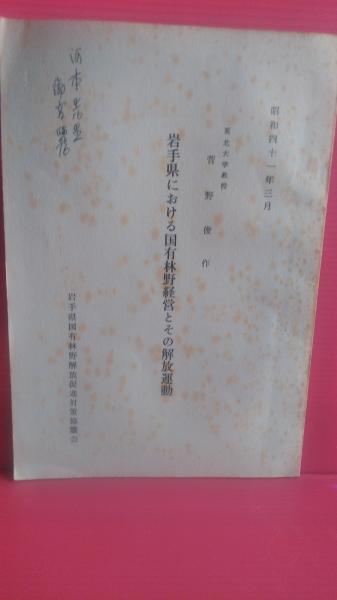 昭和四十一年三月
東北大学教授
菅野俊作
岩手県における国有林野経営とその解放運動
岩手県国有林野解放促進対策協議会